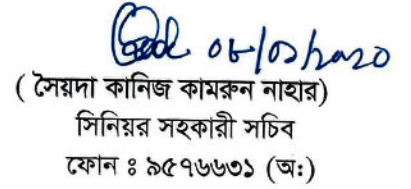 ০৮/০১/২০২০
( সৈয়দা কানিজ কামরুন নাহার)
সিনিয়র সহকারী সচিব
ফোন ঃ ৯৫৭৬৬৩১ (অ:)